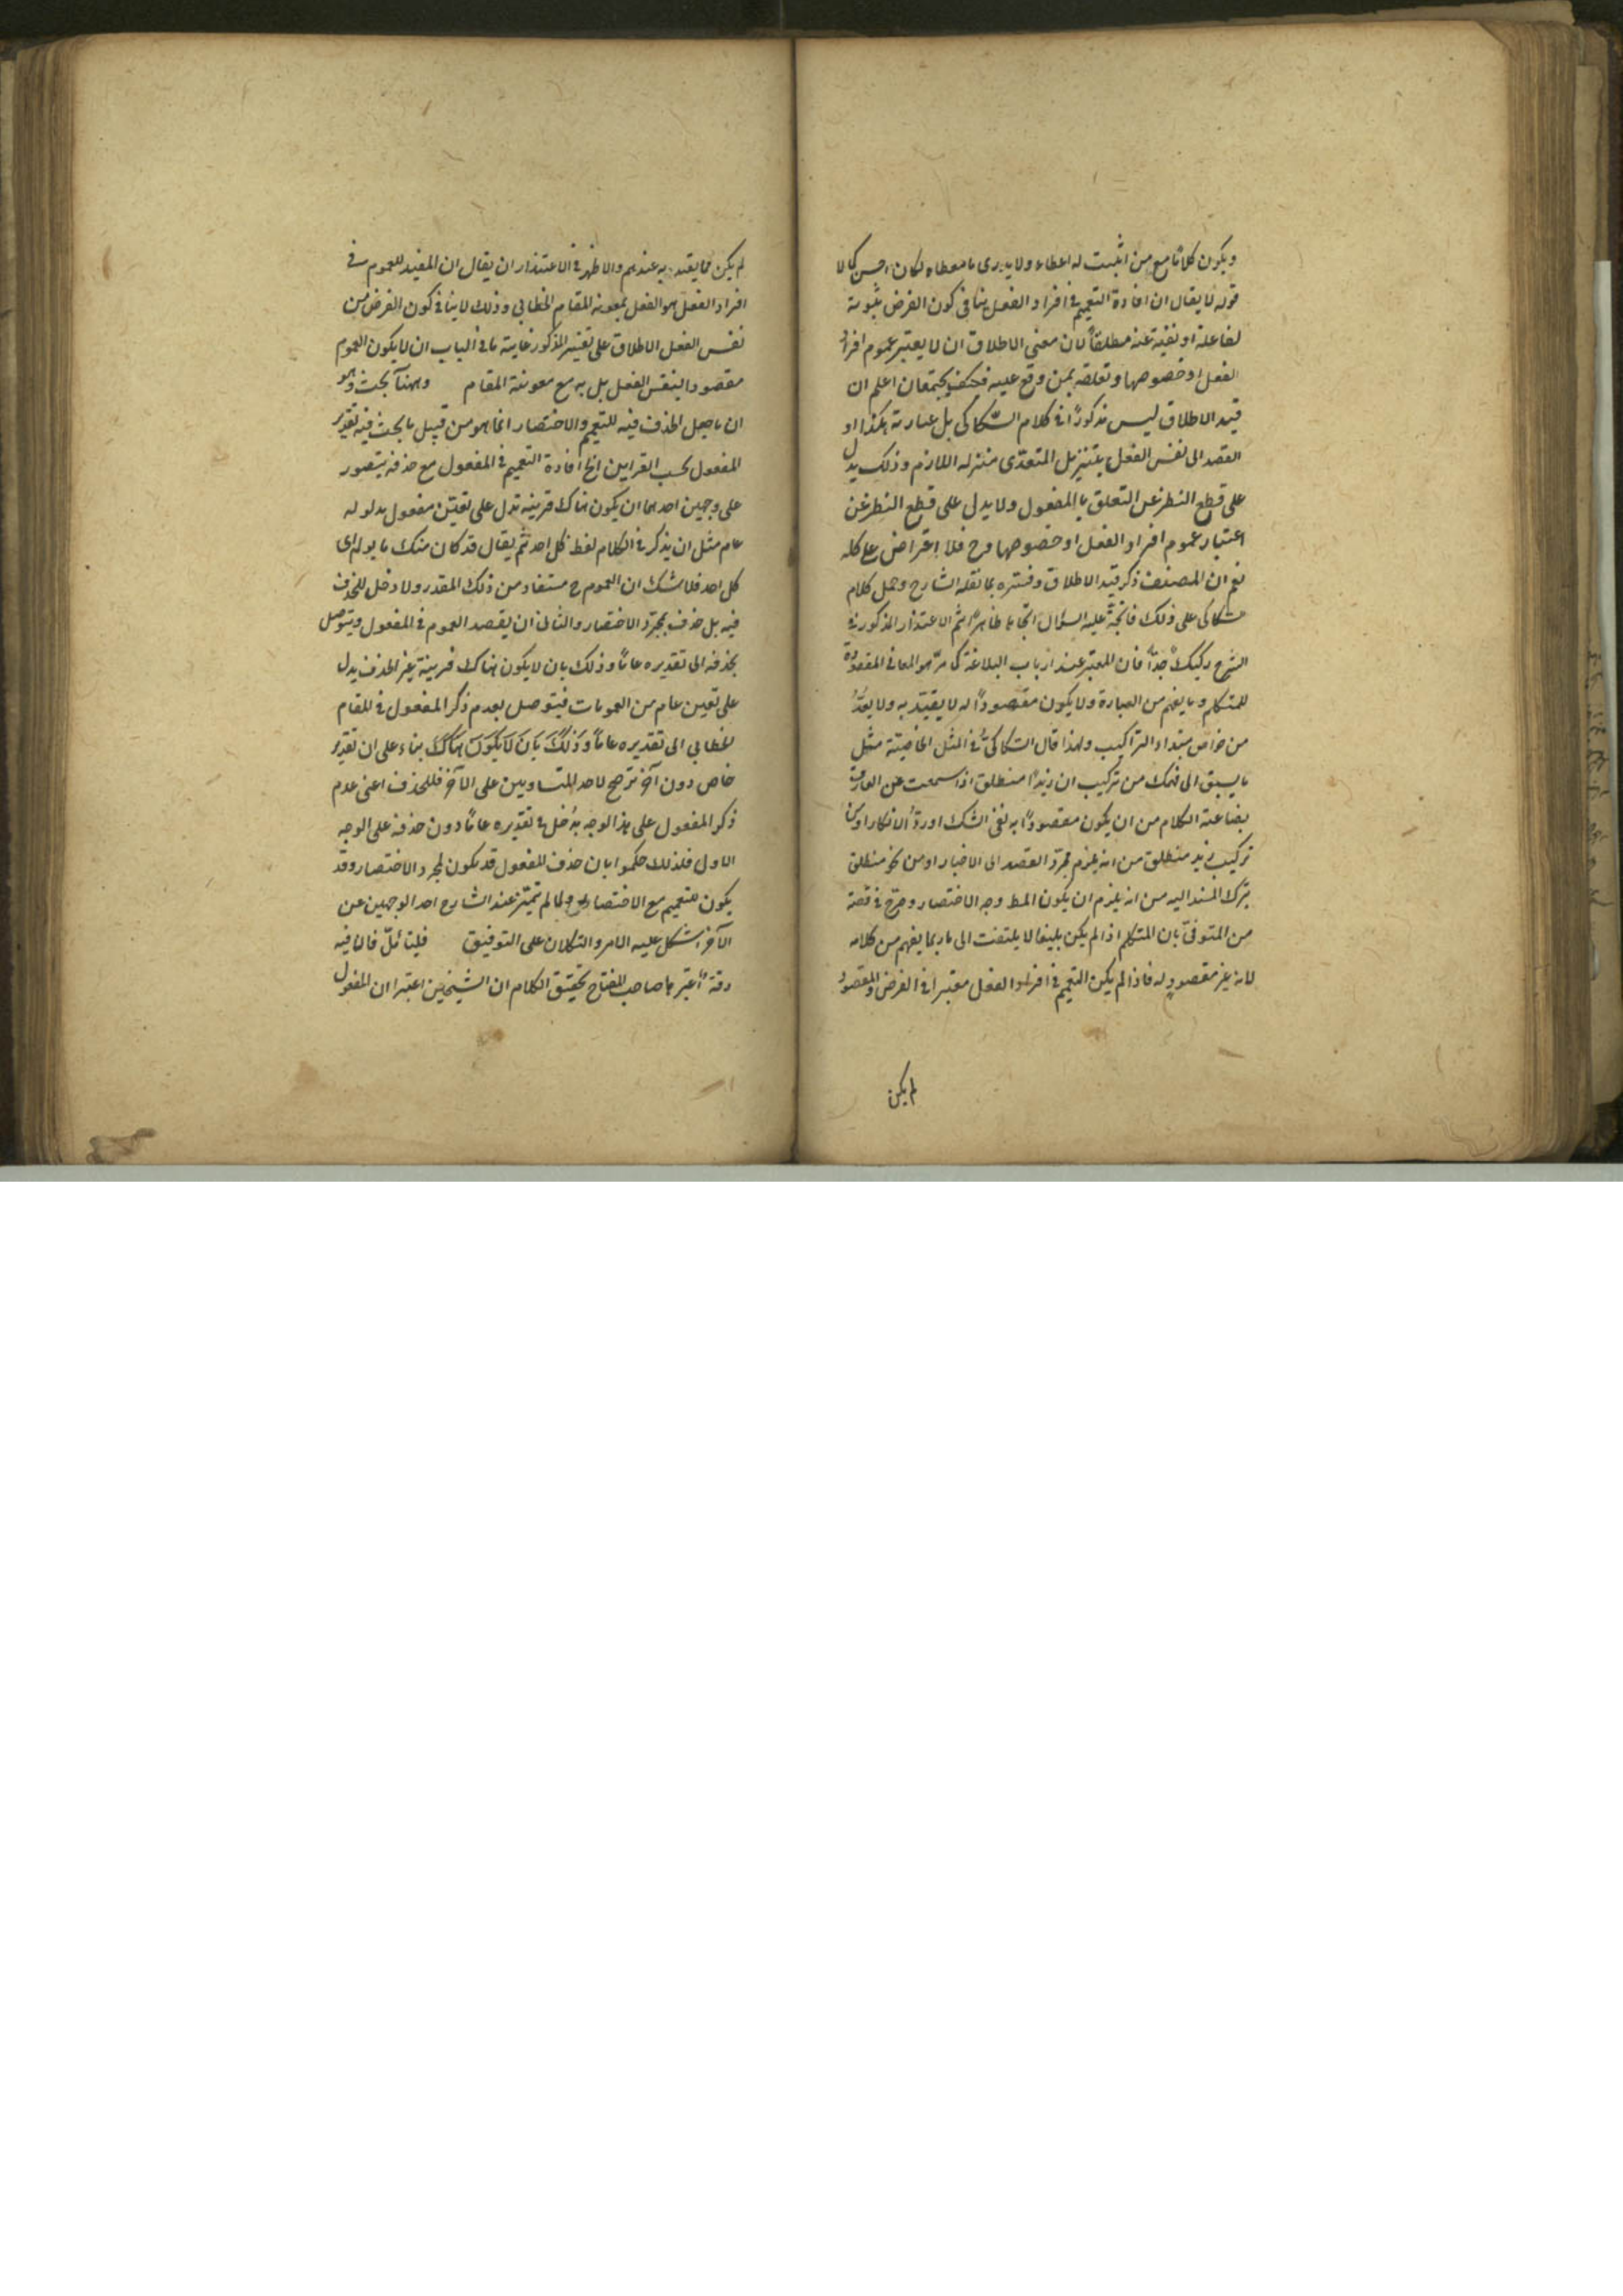 ويكون كلاما مع من اثبت له اعطاء ولا يدرى ما معطاه لكان احسن كما لا
قوله لا يقال ان افادة التعميم في افراد الفعل ينافى كون الغرض ثبوته
لفاعله او نفيه عنه مطلقا لان معنى الاطلاق ان لا يعتبر عموم افراد
الفعل او خصوصها وتعلقه بمن وقع عليه فكيف يجتمعان اعلم ان
قيد الاطلاق ليس مذكورا في كلام السكاكى بل عبارته هكذا او
القصد الى نفس الفعل بتنزيل المتعدى منزله اللازم وذلك يدل
على قطع النظر عن التعلق بالمفعول ولا يدل على قطع النظر عن
اعتبار عموم افراد الفعل او خصوصها وح فلا اعتراض على كله
نعم ان المصنف ذكر قيد الاطلاق وفسره بما نقله الشارح وحمل كلام
سكاكى على ذلك فاتجه عليه السؤال اتجاها ظاهرا ثم الاعتذار المذكور في
الشرح ركيك جدا فان المعتبر عند ارباب البلاغة كما مر هو المعانى المقصودة
للمتكلم وما يفهم من العبارة ولا يكون مقصودا له لا يعتد به ولا يعد
من خواص التراكيب ولهذا قال السكاكى في المثل الخاصية مثل
ما يسبق الى فهمك من تركيب ان زيدا منطلق اذا سمعت عن العارف
بصناعة الكلام من ان يكون مقصودا به نفى الشك او رد الانكار او من
تركيب زيد منطلق من انه يلزم مجرد القصد الى الاخبار او من نحو منطلق
بترك المسند اليه من انه يلزم ان يكون المط وجه الاختصار وصرح في قصة
من المتوفى بان المتكلم اذا لم يكن بليغا لا يلتفت الى ما ربما يفهم من كلامه
لانه غير مقصود له فاذا لم يكن التعميم في افراد الفعل معتبرا في الغرض والمقصود
لم يكن
لم يكن مما يعتد به عندهم والاظهر في الاعتذار ان يقال ان المفيد للعموم في
افراد الفعل هو الفعل بمعونة المقام الخطابى وذلك لا ينافى كون الغرض من
نفس الفعل الاطلاق على تفسير المذكور غايته ما في الباب ان لا يكون العموم
مقصودا بنفس الفعل بل به مع معونة المقام وههنا بحث وهو
ان ما جعل الحذف فيه للتعميم والاختصار انما هو من قبيل ما يجب فيه تقدير
المفعول بحسب القراين الخ افادة التعميم في المفعول مع حذفه يتصور
على وجهين احدهما ان يكون هناك قرينه تدل على تعيين مفعول مدلوله
عام مثل ان يذكر في الكلام لفظ كل احد ثم يقال قد كان منك ما يولم اى
كل احد فلا شك ان العموم ح مستفاد من ذلك المقدر ولا دخل للحذف
فيه بل حذف بمجرد الاختصار والثانى ان يقصد العموم في المفعول ويتوصل
بحذفه الى تقديره عاما وذلك بان لا يكون هناك قرينة غير الحذف يدل
على تعين عام من العمومات فيتوصل بعدم ذكر المفعول في المقام
الخطابى الى تقديره عاما وذلك بان لا يكون هناك بناء على ان تقدير
خاص دون آخر ترجيح لاحد المتساويين على الآخر فللحذف اعنى عدم
ذكر المفعول على هذا الوجه مدخل في تقديره عاما دون حذفه على الوجه
الاول فلذلك حكموا بان حذف المفعول قد يكون لمجرد الاختصار وقد
يكون للتعميم مع الاختصار ولما لم يتميز عند الشارح احد الوجهين عن
الآخر اشكل عليه الامر والتكلان على التوفيق فليتامل فان فيه
دقة اعتبرها صاحب المفتاح تحقيق الكلام ان الشيخين اعتبرا ان المفعول